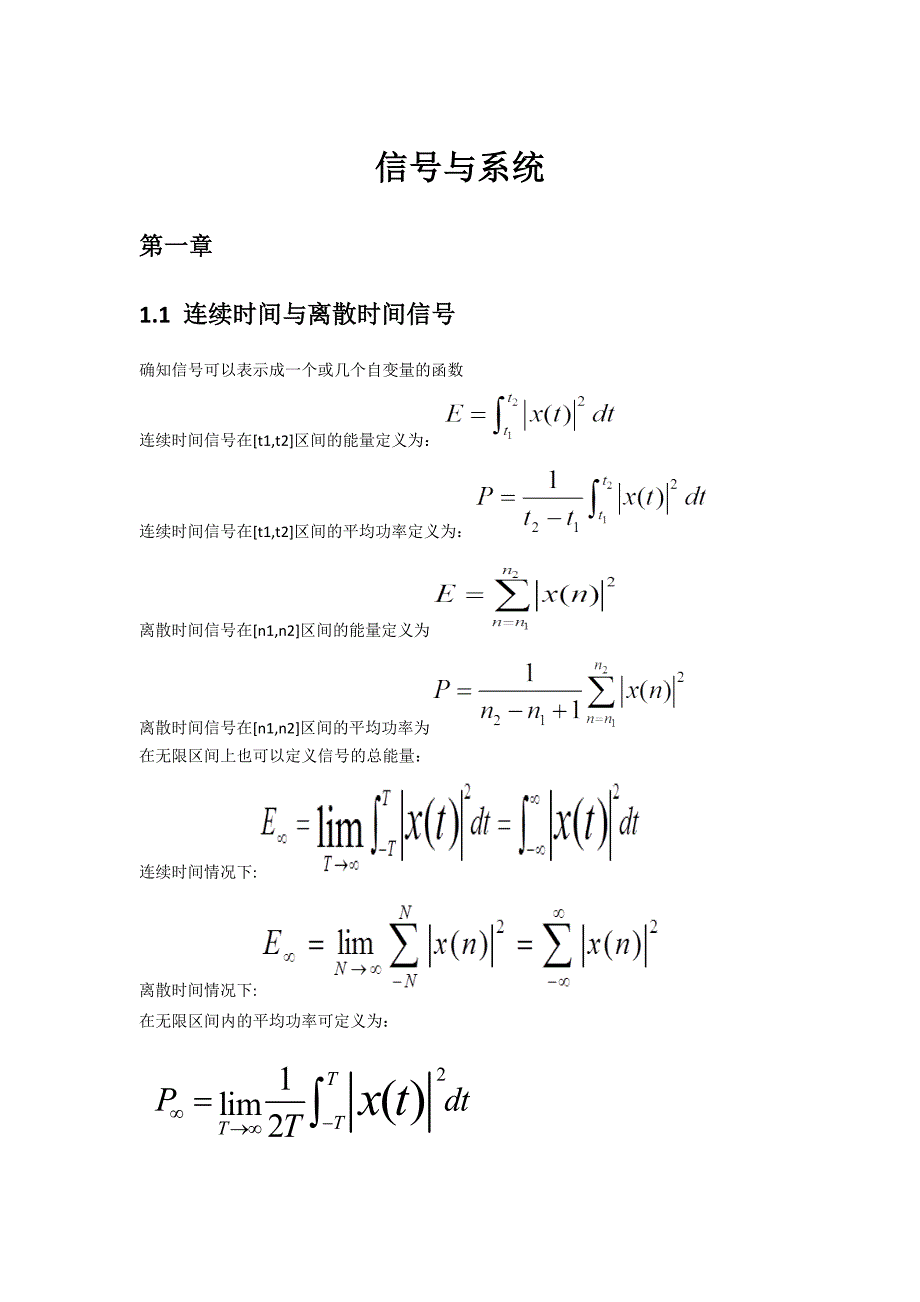 信号与系统
第一章
1.1 连续时间与离散时间信号
确知信号可以表示成一个或几个自变量的函数
连续时间信号在[t1,t2]区间的能量定义为： $E = \int_{t_1}^{t_2} |x(t)|^2 \, dt$
连续时间信号在[t1,t2]区间的平均功率定义为： $P = \frac{1}{t_2 - t_1} \int_{t_1}^{t_2} |x(t)|^2 \, dt$
离散时间信号在[n1,n2]区间的能量定义为 $E = \sum_{n=n_1}^{n_2} |x(n)|^2$
离散时间信号在[n1,n2]区间的平均功率为 $P = \frac{1}{n_2 - n_1 + 1} \sum_{n=n_1}^{n_2} |x(n)|^2$
在无限区间上也可以定义信号的总能量：
连续时间情况下: $E_\infty = \lim_{T \to \infty} \int_{-T}^{T} |x(t)|^2 dt = \int_{-\infty}^{\infty} |x(t)|^2 dt$
离散时间情况下: $E_\infty = \lim_{N \to \infty} \sum_{-N}^{N} |x(n)|^2 = \sum_{-\infty}^{\infty} |x(n)|^2$
在无限区间内的平均功率可定义为：
$P_\infty = \lim_{T \to \infty} \frac{1}{2T} \int_{-T}^{T} |x(t)|^2 dt$